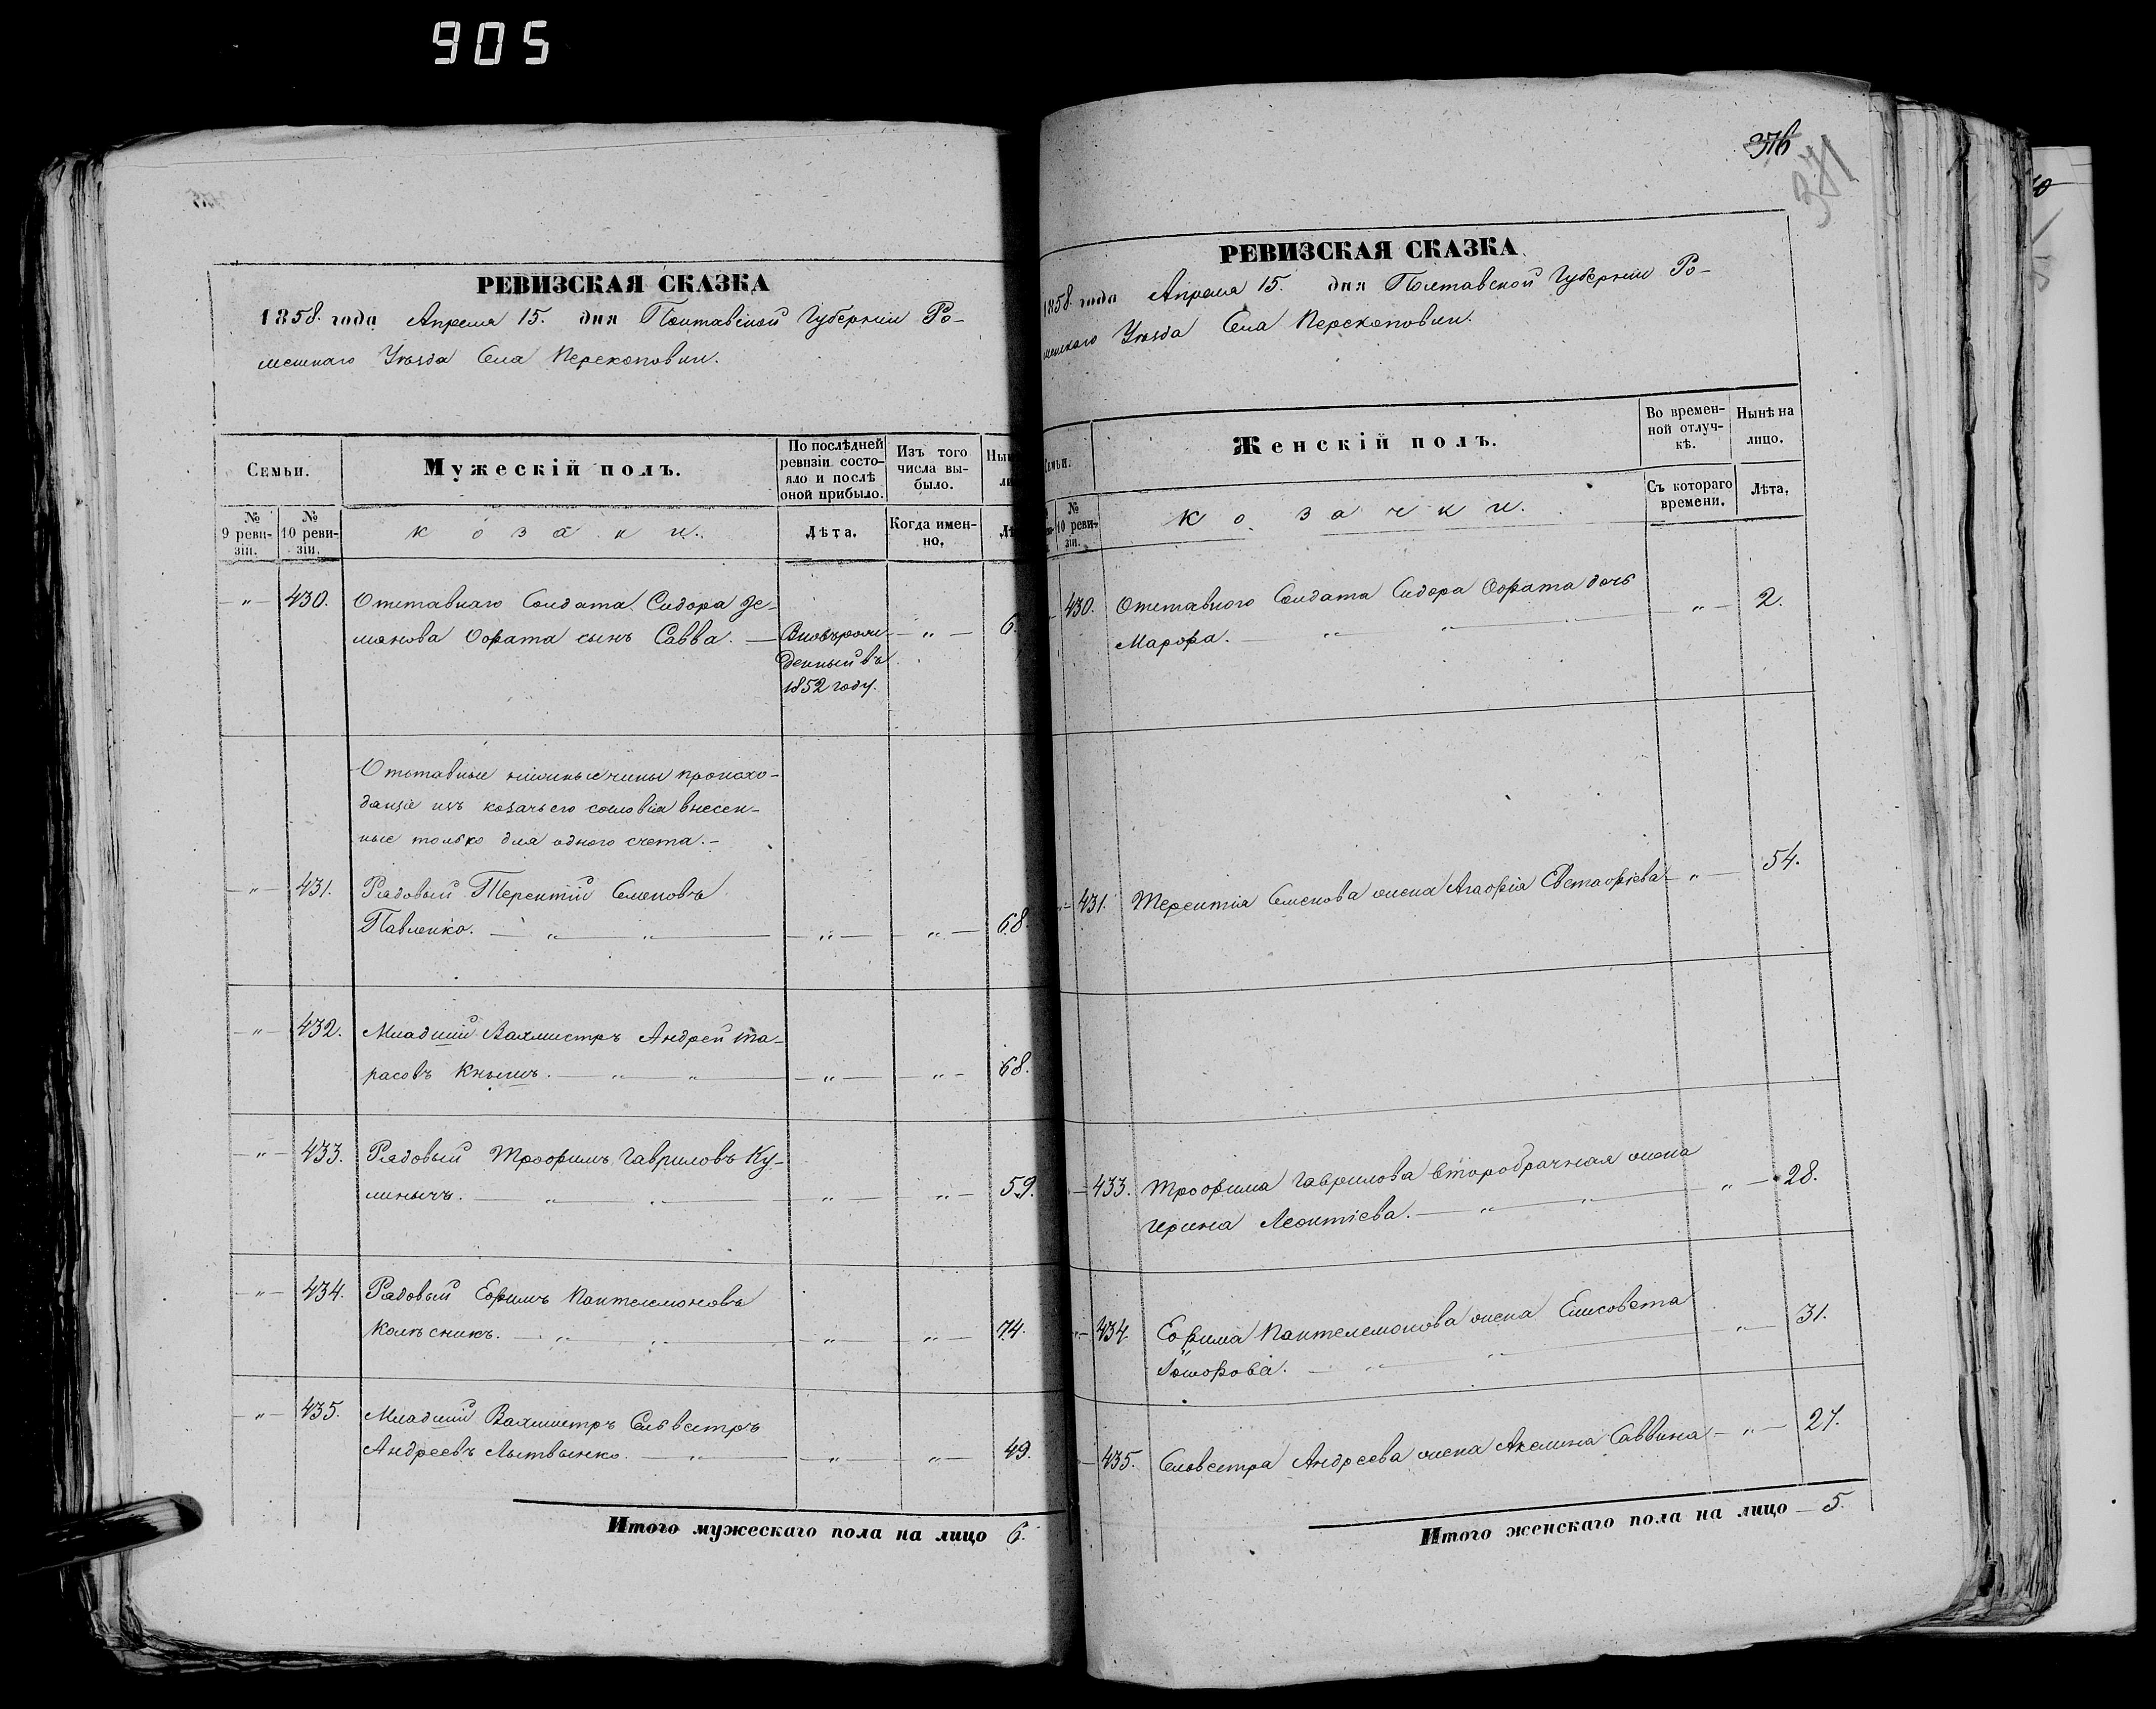 905
РЕВИЗСКАЯ СКАЗКА
1858. года Апреля 15. дня Полтавской Губерніи Ро-
менскаго Уѣзда Села Перекоповки.
Семьи.
Мужескій полъ.
По послѣдней ревизіи состо-яло и послѣ оной прибыло.
Изъ того числа вы-было.
№ 9 реви-зіи.
№ 10 реви-зіи.
козаки.
Лѣта.
Когда имен-но.
430. Отставнаго Солдата Сидора
Ософата сынъ Савва. — Вновърож- — „ — 6.
денный въ
1852 году.
Отставные нижные чины происхо-
дящіе изъ козачьего сословія внесен-
ные только для одного счета. -
— „ — 431. Рядовый Терентій Семеновъ
Павленко. — „ — „ — 68.
— „ — 432. Младшій Вахмистръ Андрей Та-
расовъ Кнышъ. — „ — „ — 68.
— „ — 433. Рядовый Трофимъ Гавриловъ Ку-
линычъ. — „ — „ — 59.
— „ — 434. Рядовый Ефимъ Пантелемоновъ
Колѣсникъ. — „ — „ — 74.
— „ — 435. Младшій Вахмистръ Сельвестръ
Андреевъ Лытвынко. — „ — 49.
Итого мужескаго пола на лицо 6.
376
371
РЕВИЗСКАЯ СКАЗКА
1858. года Апреля 15. дня Полтавской Губерніи Ро-
менскаго Уѣзда Села Перекоповки.
Женскій полъ.
Во времен-ной отлуч-кѣ.
Нынѣ на лицо.
№ 10 реви-зіи.
козачки.
Съ котораго времени.
Лѣта.
430. Отставного Солдата Сидора Ософата дочь
Марфа. — „ — „ — 2.
431. Терентія Семенова жена Агафія Евстафіева — „ — 54.
433. Трофима Гаврилова второбрачная жена
Ирина Леонтіева. — „ — „ — 28.
434. Ефима Пантелемонова жена Елисовета
— „ — „ — 31.
435. Сельвестра Андреева жена Акелина Саввина — „ — 27.
Итого женскаго пола на лицо — 5.